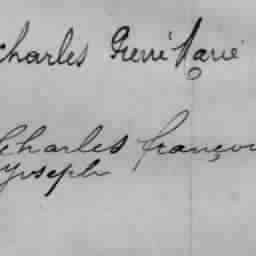 Charles Pierre Marie
Charles françois
Joseph